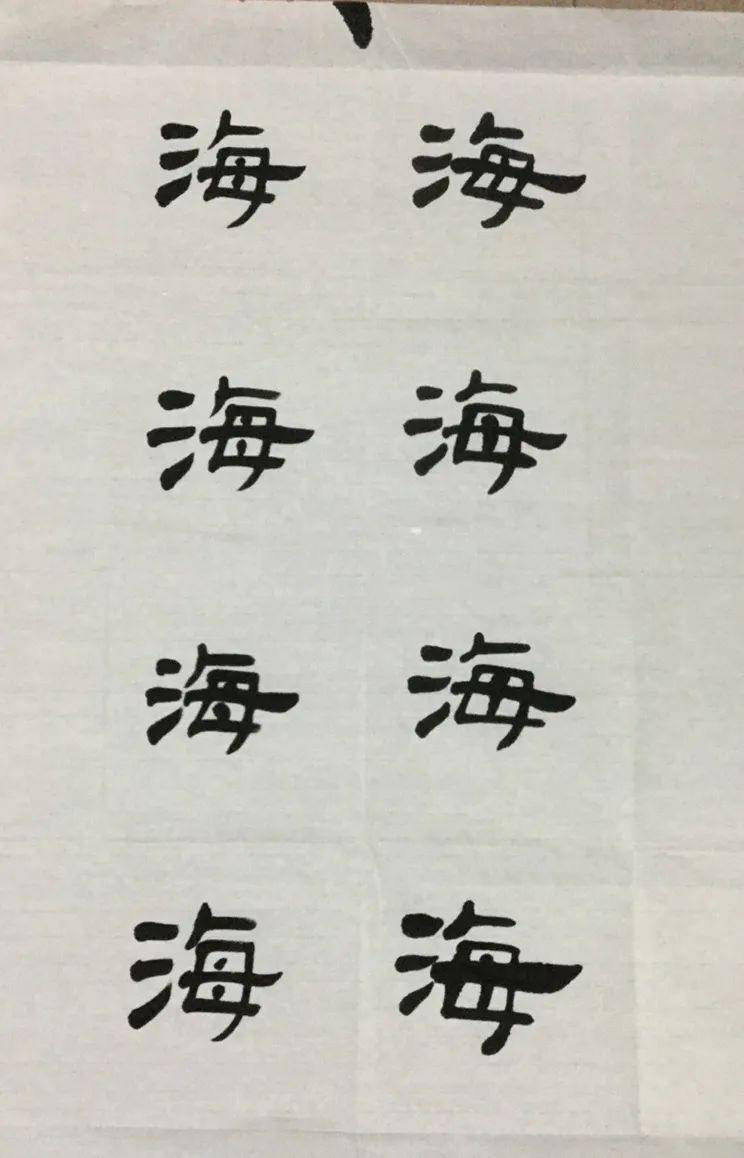 海海
海海
海海
海海